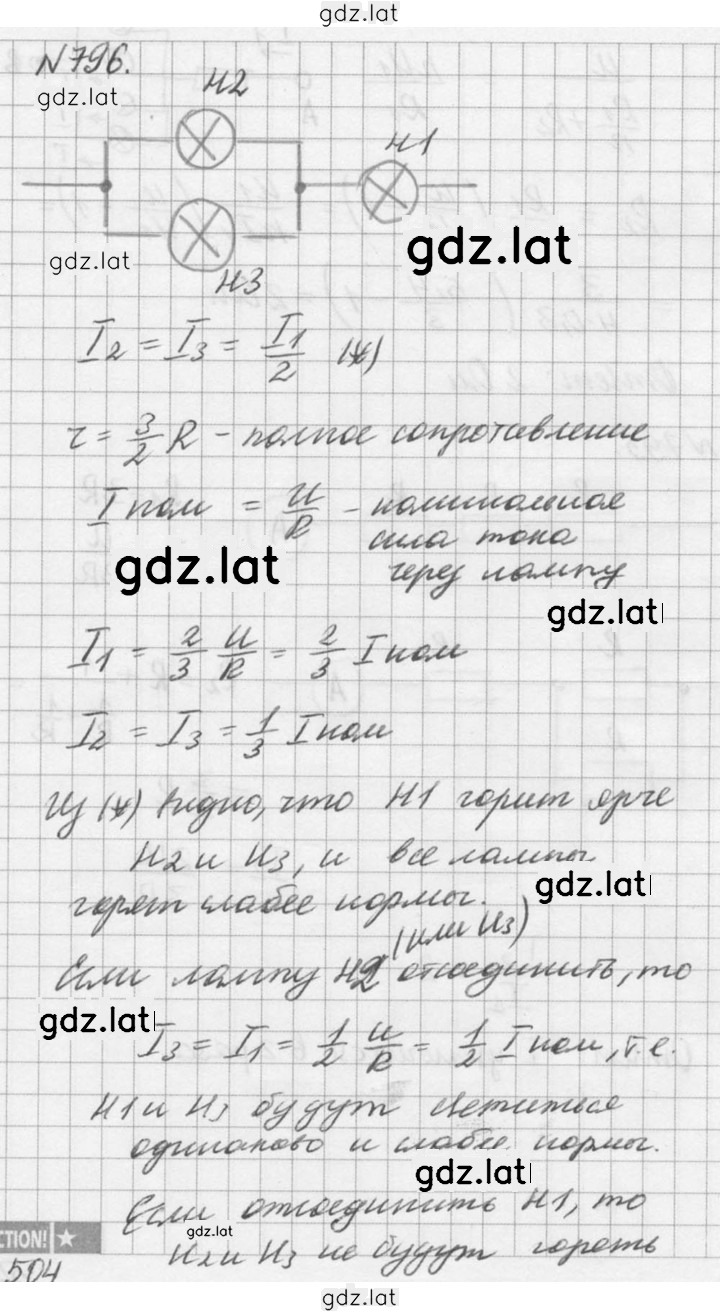 gdz.lat
N796.
gdz.lat
H2
H1
gdz.lat
gdz.lat
H3
I₂ = I₃ = I₁/2 (*)
r = 3/2 R - полное сопротивление
I ном = U/R - номинальная
сила тока
через лампу
gdz.lat
gdz.lat
I₁ = 2/3 U/R = 2/3 I ном
I₂ = I₃ = 1/3 I ном
Из (*) видно, что H1 горит ярче
H2 и H3, и все лампы
gdz.lat
горят слабее нормы.
(или H3)
Если лампу H2 отсоединить, то
gdz.lat
I₃ = I₁ = 1/2 U/R = 1/2 I ном, т.е.
H1 и H3 будут светиться
одинаково и слабее нормы.
gdz.lat
Если отсоединить H1, то
gdz.lat
H2 и H3 не будут гореть
CTION!
504
gdz.lat